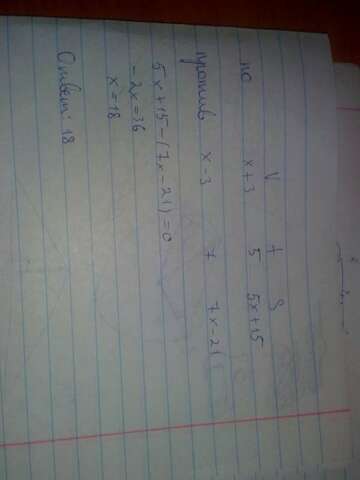 V t S
по x+3 5 5x+15
против x-3 7 7x-21
5x+15-(7x-21)=0
-2x=36
x=18
Ответ: 18